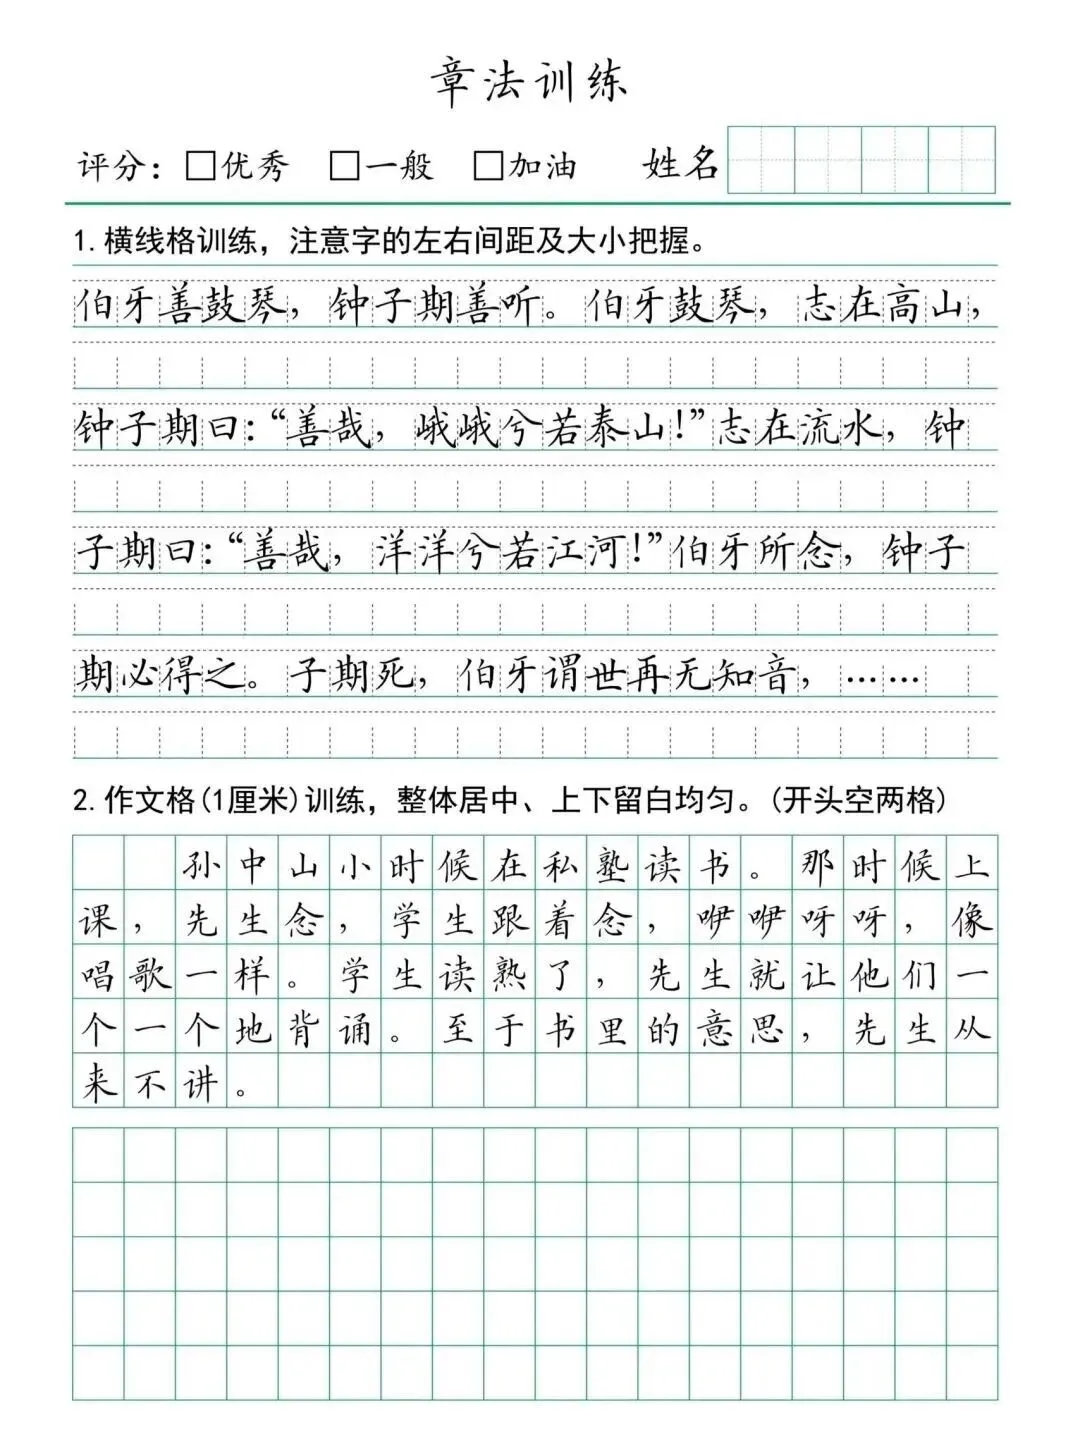 章法训练
评分：□优秀 □一般 □加油 姓名
1.横线格训练，注意字的左右间距及大小把握。
伯牙善鼓琴，钟子期善听。伯牙鼓琴，志在高山，
钟子期曰：“善哉，峨峨兮若泰山！”志在流水，钟
子期曰：“善哉，洋洋兮若江河！”伯牙所念，钟子
期必得之。子期死，伯牙谓世再无知音，……
2.作文格(1厘米)训练，整体居中、上下留白均匀。(开头空两格)
孙中山小时候在私塾读书。那时候上
课，先生念，学生跟着念，咿咿呀呀，像
唱歌一样。学生读熟了，先生就让他们一
个一个地背诵。至于书里的意思，先生从
来不讲。